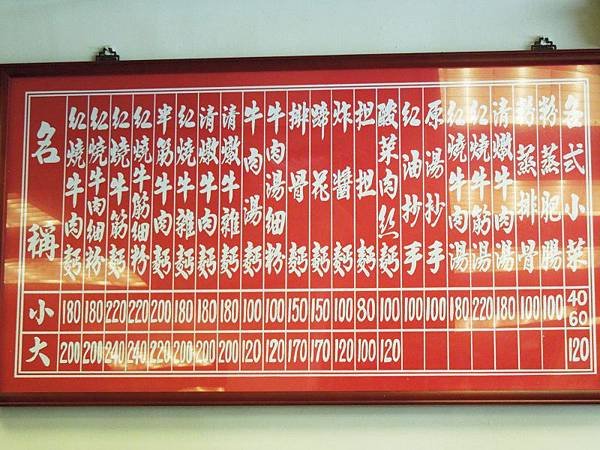 名稱 小 大
紅燒牛肉麪 180 200
紅燒牛肉細粉 180 200
紅燒牛筋麪 220 240
紅燒牛筋細粉 220 240
半筋半肉麪 200 220
紅燒牛雜麪 180 200
清燉牛肉麪 180 200
清燉牛雜麪 180 200
牛肉湯麪 100 120
牛肉湯細粉 100 120
排骨麪 150 170
蹄花麪 150 170
炸醬麪 100 120
担担麪 80 100
酸菜肉丝麪 100 120
紅油抄手 100
原湯抄手 100
紅燒牛肉湯 180
紅燒牛筋湯 220
清燉牛肉湯 180
粉蒸排骨 100
粉蒸肥腸 100
各式小菜 40 60 120